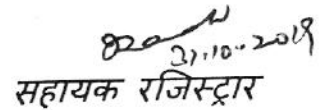 31.10.2019
सहायक रजिस्ट्रार